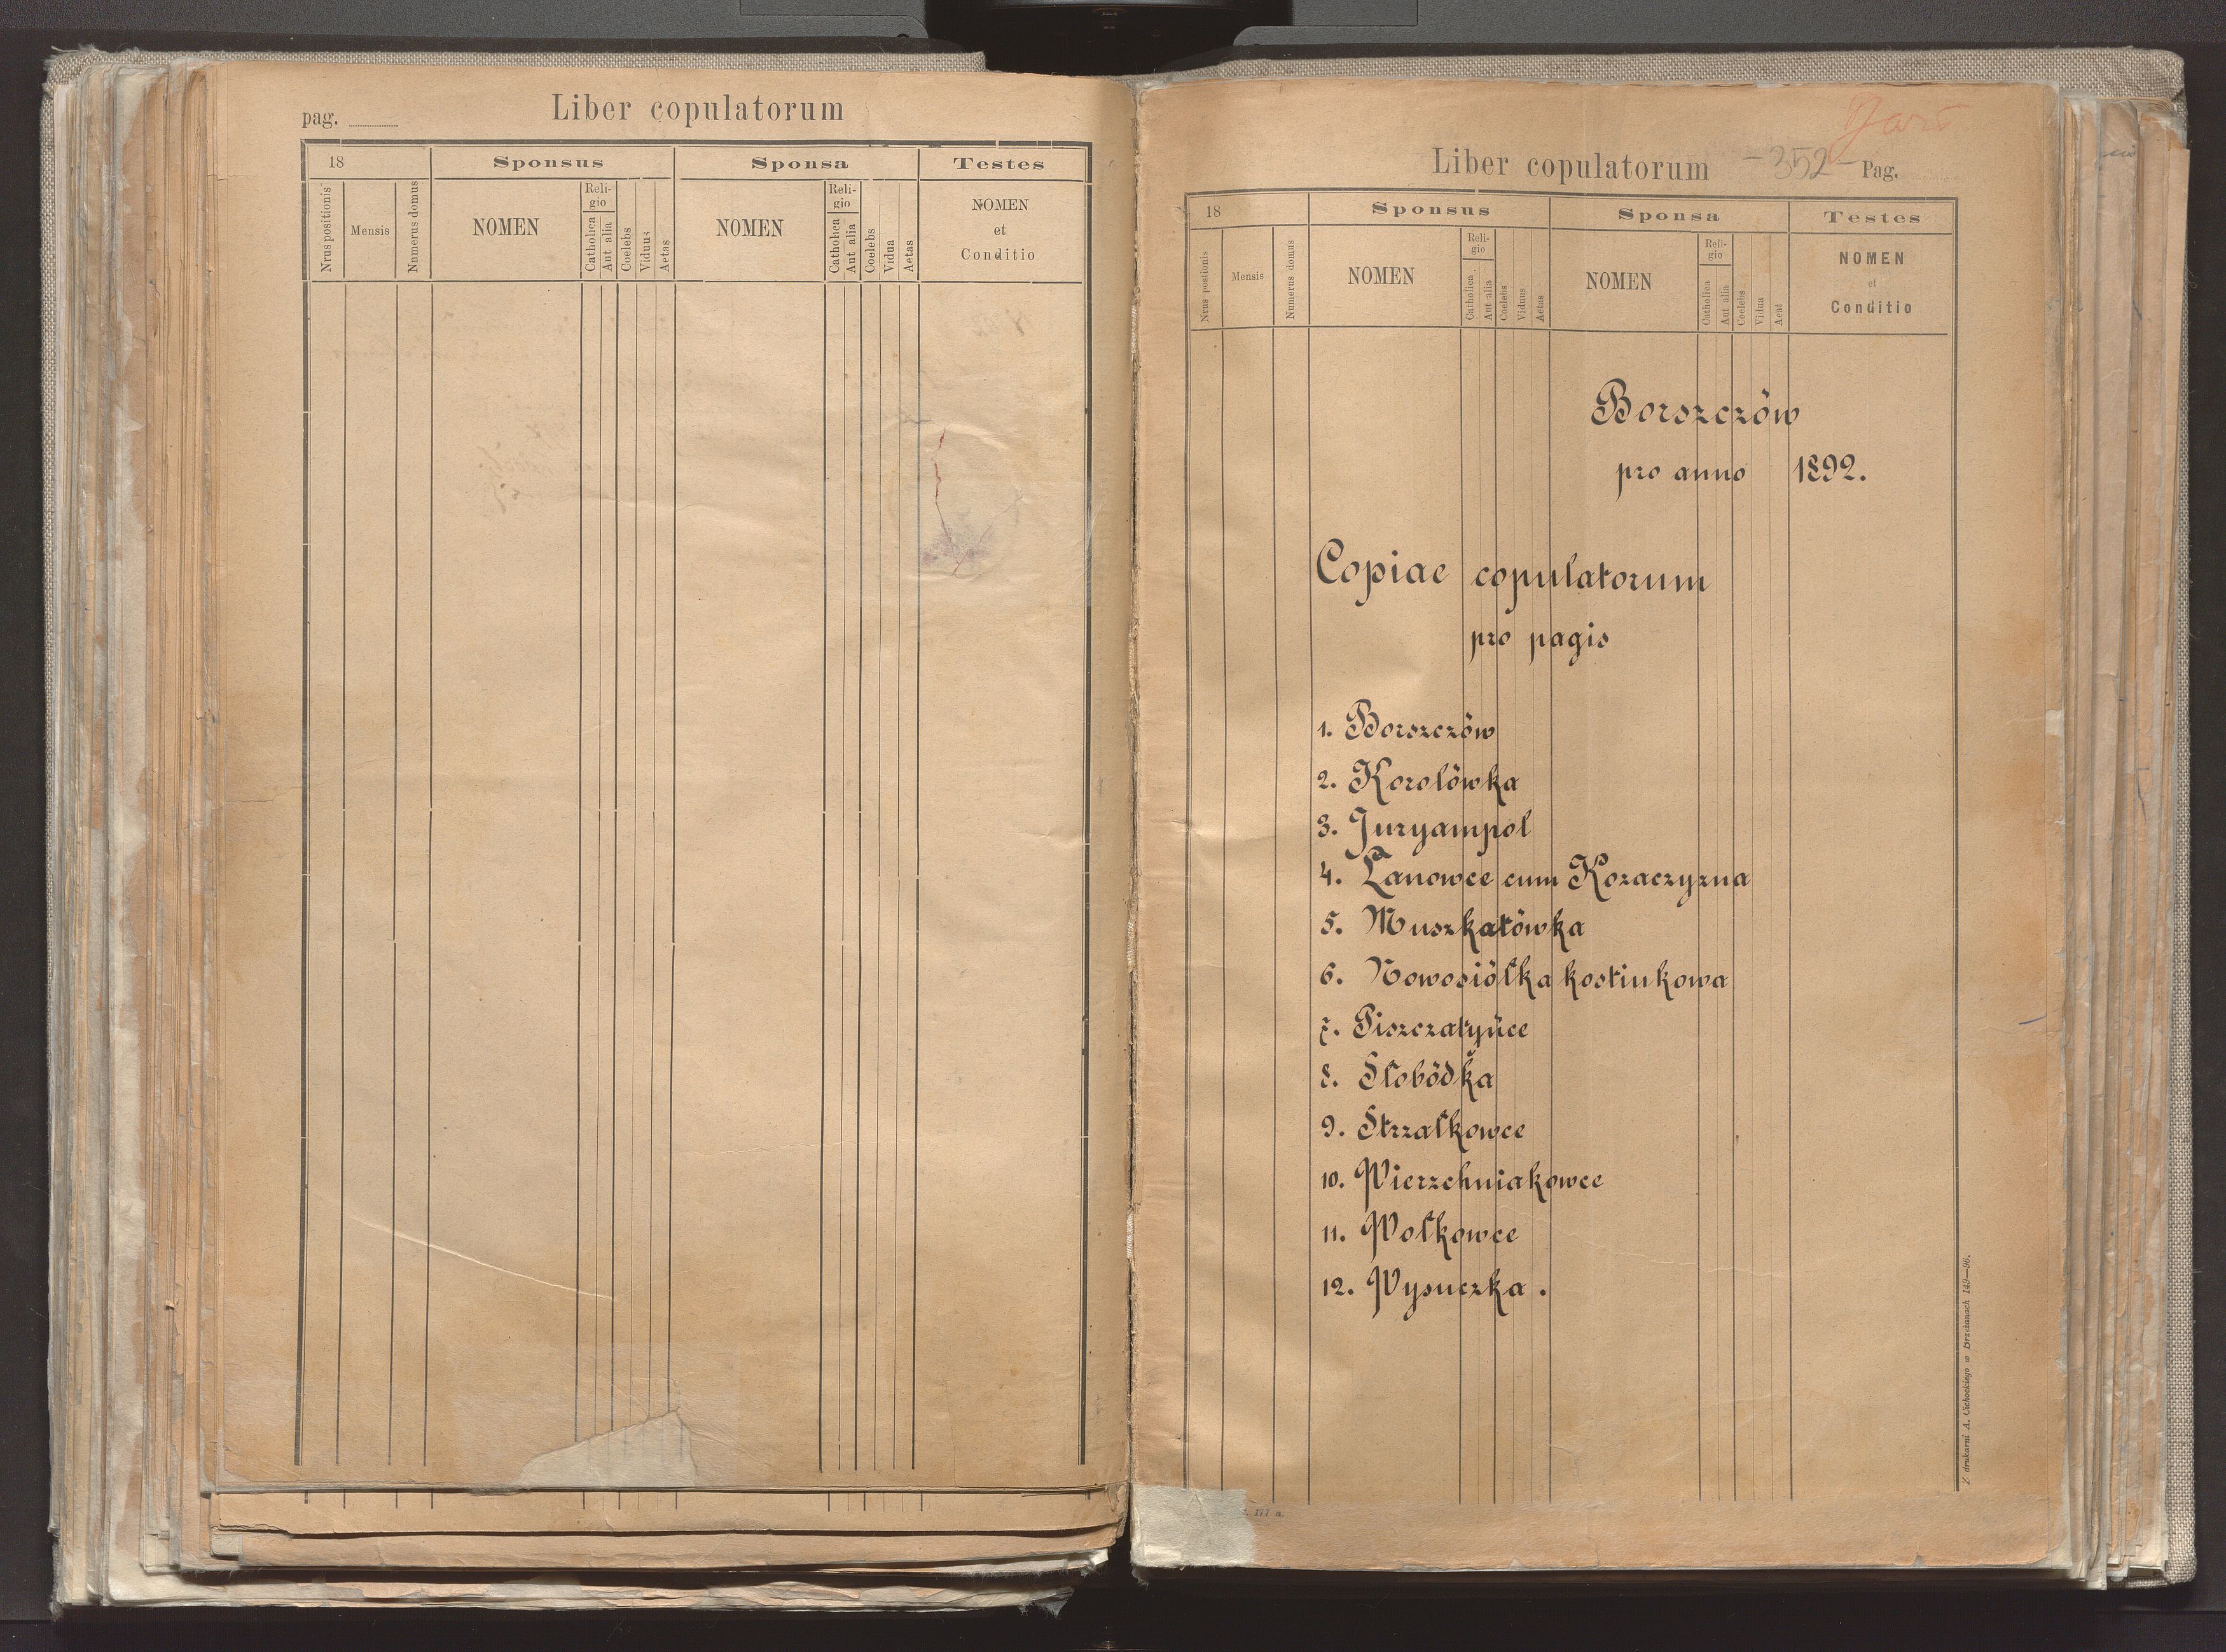 pag.
Liber copulatorum
18
Sponsus
Sponsa
Testes
Nrus positionis
Mensis
Numerus domus
NOMEN
Religio
Catholica
Aut alia
Coelebs
Viduus
Aetas
NOMEN
Religio
Catholica
Aut alia
Coelebs
Vidua
Aetas
NOMEN
et
Conditio
Liber copulatorum
-352-
Pag.
18
Sponsus
Sponsa
Testes
Nrus postionis
Mensis
Numerus domus
NOMEN
Religio
Catholica
Aut alia
Coelebs
Viduus
Aetas
NOMEN
Religio
Catholica
Aut alia
Coelebs
Vidua
Aeat
NOMEN
et
Conditio
Borszczów
pro anno 1892.
Copiae copulatorum
pro pagis
1. Borszczów
2. Korolówka
3. Juryampol
4. Łanowce cum Kozaczyzna
5. Muszkatówka
6. Nowosiółka kostiukowa
7. Piszczatyńce
8. Słobódka
9. Strzałkowce
10. Wierzchniakowce
11. Wołkowce
12. Wysuczka.
Z drukarni A. Cichockiego w Brzeżanach 149—96.
177 a.